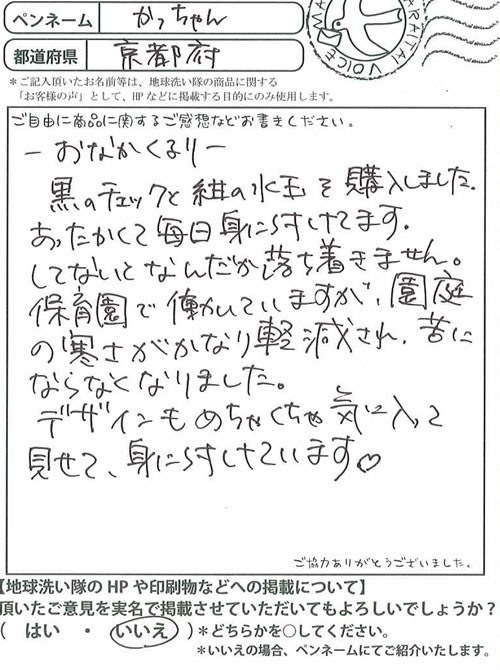 ペンネーム かっちゃん
都道府県 京都府
*ご記入頂いたお名前等は、地球洗い隊の商品に関する
「お客様の声」として、HPなどに掲載する目的にのみ使用します。
ARAITAI VOICE
ご自由に商品に関するご感想などお書きください。
ーおなかくるりー
黒のチェックと紺の水玉を購入しました。
あったかくて毎日身に付けてます。
してないとなんだか落ち着きません。
保育園で働いていますが、園庭
の寒さがかなり軽減され、苦に
ならなくなりました。
デザインもめちゃくちゃ気に入って
見せて、身に付けしています♡
ご協力ありがとうございました。
【地球洗い隊のHPや印刷物などへの掲載について】
頂いたご意見を実名で掲載させていただいてもよろしいでしょうか?
( はい ・ いいえ )*どちらかを○してください。
*いいえの場合、ペンネームにてご紹介いたします。